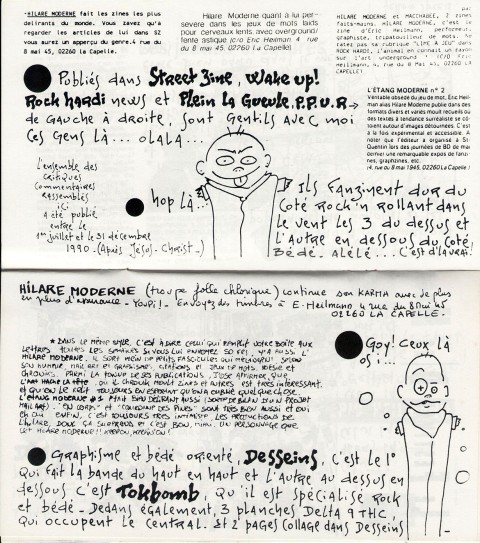 -HILARE MODERNE fait les zines les plus
délirants du monde. Vous zavez qu'à
regarder les articles de lui dans SZ
vous aurez un apperçu du genre.4 rue du
8 mai 45, 02260 La Capelle)
Hilare Moderne quant à lui per-
sévère dans les jeux de mots laxts
pour cerveaux lents, avec overground/
fonte asilage (c/o Eric Heilman 4 rue
du 8 mai 45, 02260 La Capelle)
par:
HILARE MODERNE et MACCHABEE, 2 zines
faits-mains. HILARE MODERNE, c'est
le zine d'Eric Heilmann, performeur,
4, rue du 8 Mai 45, 02260 LA
CAPELLE)
Publiés dans Street Zine, Wake up!
Rock hardi news et Plein La Gueule.P.P.U.R→
de Gauche à droite, sont Gentils avec moi
ces Gens là... olala...
L'ÉTANG MODERNE n° 2
Véritable obsédé du jeu de mot, Eric Heil-
man alias Hilare Moderne publie dans des
formats divers et variés moult recueils ou
des textes à tendance surréaliste se co-
toient autour d'images détournées. C'est
à la fois expérimental et accessible. A
noter que l'éditeur a organisé à St-
Quentin lors des journées de BD de mai
dernier une remarquable expos de fanzi-
nes, graphzines, etc.
(4, rue du 8 mai 1945, 02260 La Capelle)
L'ensemble des
critiques
commentaires
rassemblés
ici
a été publié
entre le
1er juillet et le 31 décembre
1990.(Après Jésus-Christ...)
hop là...
Ils fanzinent dur du
côté Rock'n rollant dans
le vent les 3 du dessus et
l'autre en dessous du côté
Bédé. Alélé....C'est d'la vrai!
HiLARE MODERNE (troupe folle chlorique) continue son KARMA avec de plus
en plus d'assurance - Youpi! - Envoyez des timbres à E. Heilmann 4 rue du 8 Mai 45
02260 LA CAPELLE.
★ DANS LE MÊME STYLE, C'EST À DIRE CELUI QUI REMPLIT VOTRE BOÎTE AUX
LETTRES TOUTES LES SEMAINES SI VOUS LUI ENVOYEZ 50 FRS, Y'A AUSSI L'
HILARE MODERNE. IL SORT PLEIN DE PETITS FASCICULES QUI MÉLANGENT SELON
SON HUMEUR MAIL ART ET GRAPHISME, CITATIONS ET JEUX DE MOTS, POÉSIE ET
DISCOURS. PARMI LA TONNE DE SES PUBLICATIONS, J'OSE AFFIRMER QUE
L'ART MACHE LA TÊTE OU IL CHRONIQUE MOULT ZINES ET AUTRES EST TRÈS INTÉRESSANT.
ET QU'ON LE RELIT TOUJOURS EN ESPÉRANT QU'ON A OUBLIÉ QUELQUE CHOSE.
L'ETANG MODERNE #1 ÉTAIT BIEN DÉLIRANT AUSSI (SORTE DE BILAN D'UN PROJET
MAIL ART). "EN CORPS" ET "CALENDRIER DES PINES" SONT TRÈS BIEN AUSSI ET OUI
EH OUI. ENFIN, C'EST TOUJOURS TRÈS INTIMISTE LES PRODUCTIONS DE
L'HILARE, DONC ÇA SURPREND ET C'EST BON, MIAM. UN PERSONNAGE QUE
CET HILARE MODERNE!
Goy! Ceux là
osi...
Graphisme et bédé orienté, Desseins, c'est le 1°
qui fait la bande du haut en haut et l'autre au dessus en
dessous c'est Tokbomb, Qu'il est spécialisé Rock
et bédé - Dedans également, 3 planches Delta 9 THC,
qui occupent le central. Et 2 pages collage dans Desseins